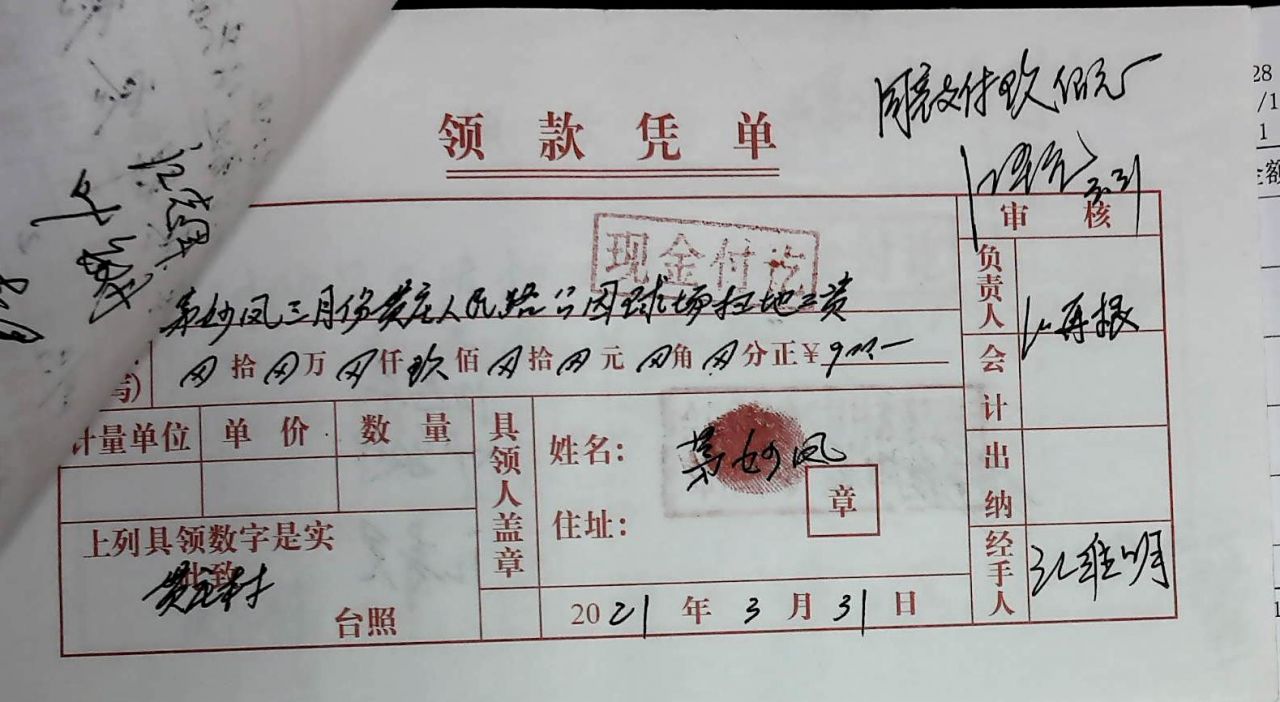 同意支付玖佰元
领款凭单
3.31
审核
现金付讫
妙凤三月份黄庄人民路公园球场扫地工资
写)
拾 万 仟 玖 佰 拾 元 角 分正¥900.一
负责人
再根
会计
计量单位 单价 数量
具领人盖章
姓名: 妙凤
章
住址:
出纳
上列具领数字是实
此致
黄庄村
台照
2021年3月31日
经手人
江维明
28
/1
1
金额